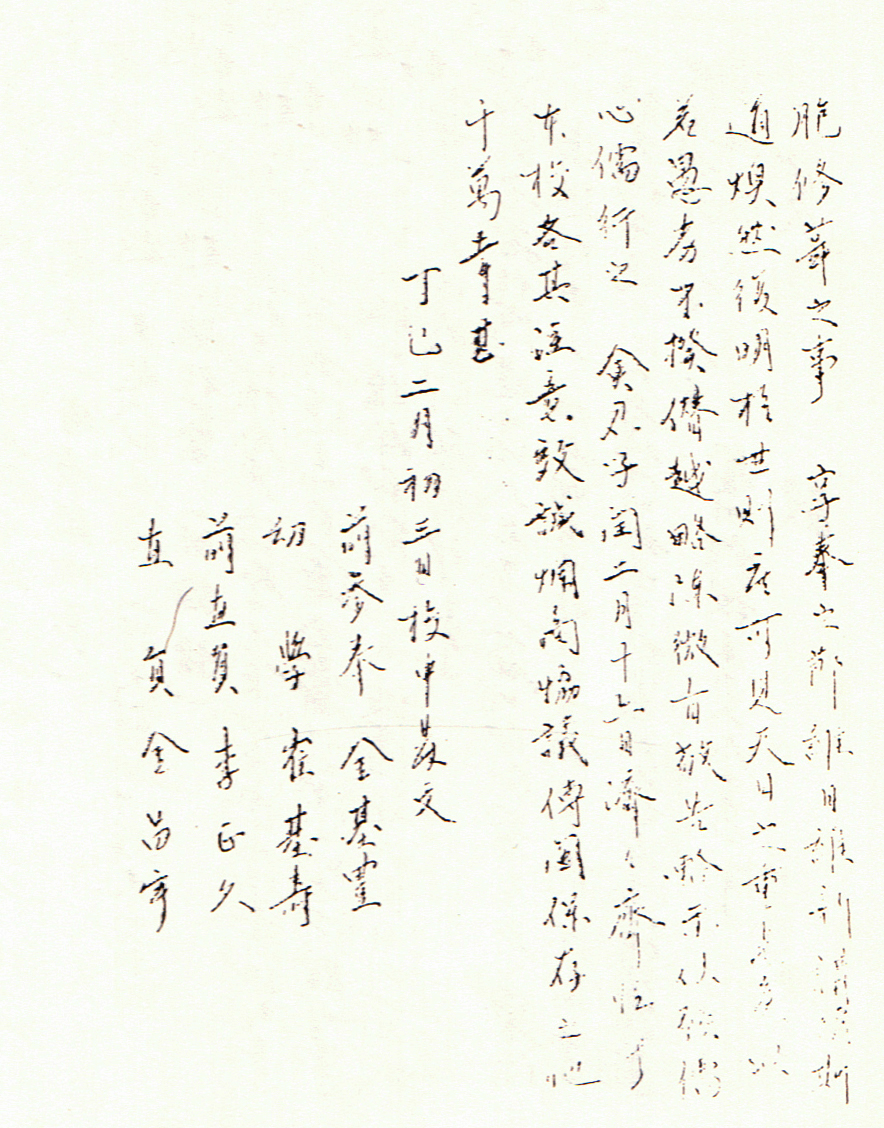 修葺之事 享奉之節誰日維新講明斯
道煥然後明於世則庶可見天日之重 以
若愚劣不揆僭越略陳微 敬告 示 儒
心儒行之 僉君子閏二月十六日濟濟齊臨于
本校各其注意致誠 商協議傳 保存之地
千萬幸甚
丁巳二月初三日校中發文
前參奉 金基豊
幼學 崔基壽
前直員 李正久
直員 金昌宇